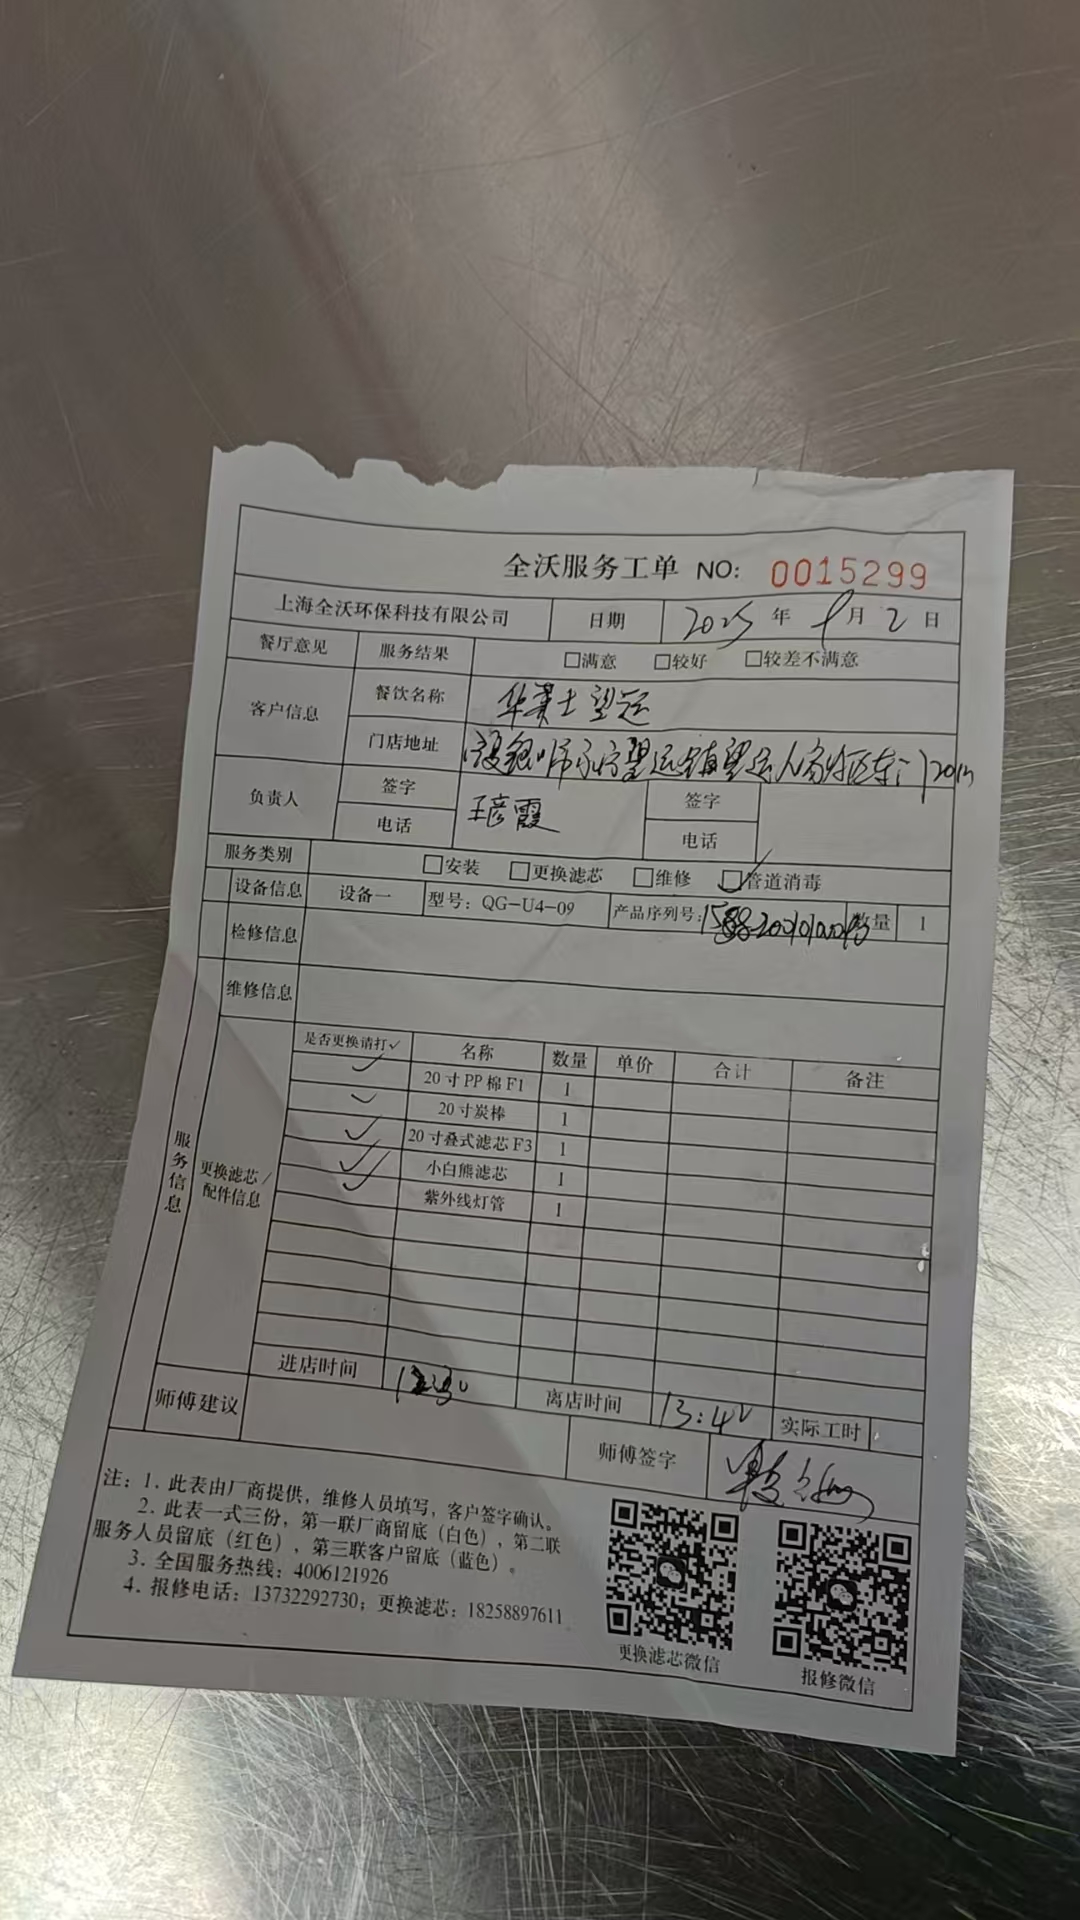 全沃服务工单 NO: 0015299
上海全沃环保科技有限公司 日期 2025 年 9 月 2 日
餐厅意见 服务结果 □满意 □较好 □较差不满意
客户信息 餐饮名称 华莱士望远
门店地址 望远镇望远人家
负责人 签字 王彦霞 签字
电话 电话
服务类别 □安装 □更换滤芯 □维修 □管道消毒
设备信息 设备一 型号: QG-U4-09 产品序列号: 数量 1
检修信息
维修信息
服务信息 更换滤芯/配件信息
是否更换请打✓ 名称 数量 单价 合计 备注
✓ 20寸PP棉F1 1
✓ 20寸炭棒 1
✓ 20寸叠式滤芯F3 1
✓ 小白熊滤芯 1
✓ 紫外线灯管 1
进店时间 离店时间 13:40 实际工时
师傅建议 师傅签字
注: 1. 此表由厂商提供, 维修人员填写, 客户签字确认。
2. 此表一式三份, 第一联厂商留底 (白色), 第二联
服务人员留底 (红色), 第三联客户留底 (蓝色)。
3. 全国服务热线: 4006121926
4. 报修电话: 13732292730; 更换滤芯: 18258897611
更换滤芯微信 报修微信